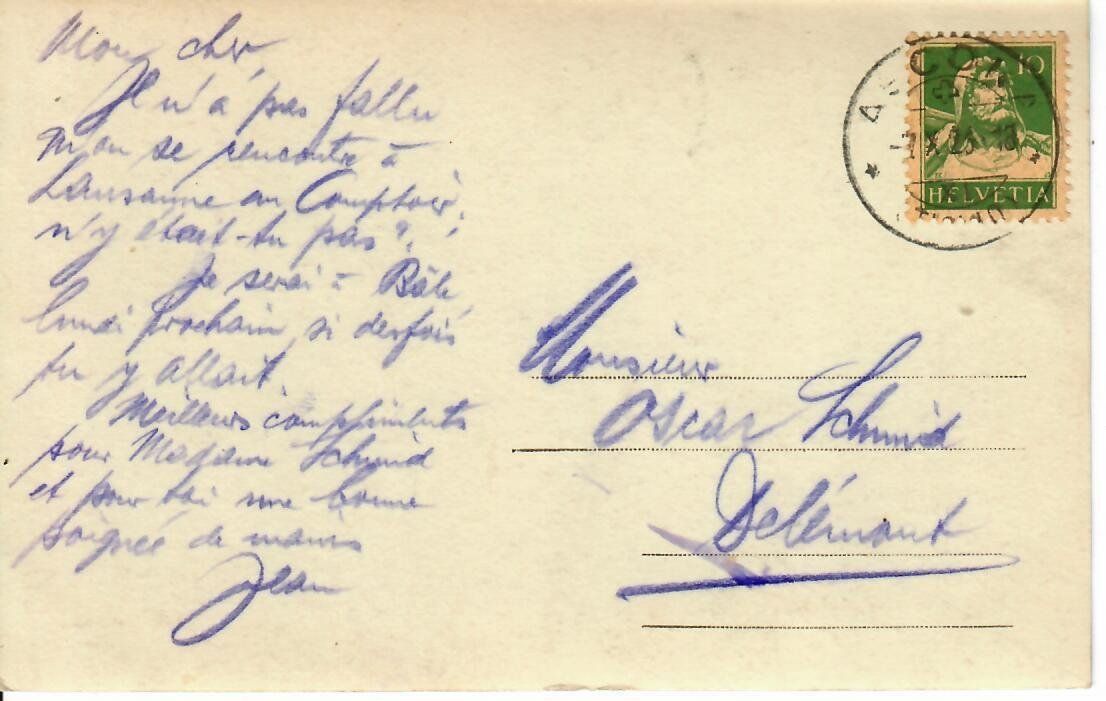 Mon cher,
Il n'a pas fallu
qu'on se rencontre à
Lausanne au Comptoir,
n'y était-tu pas?
Je serai à Bâle
lundi prochain, si desfois
tu y allait.
Meilleurs compliments
pour Madame Schmid
et pour toi une bonne
poignée de mains
Jean
10
HELVETIA
Monsieur
Oscar Schmid
Delémont